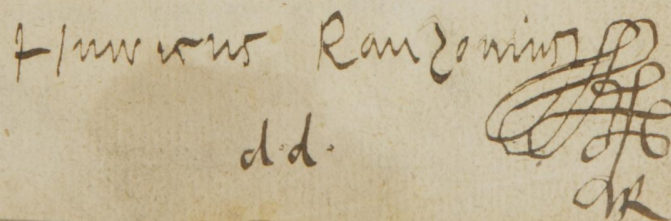 Hinricus Ranzouius
d.d.